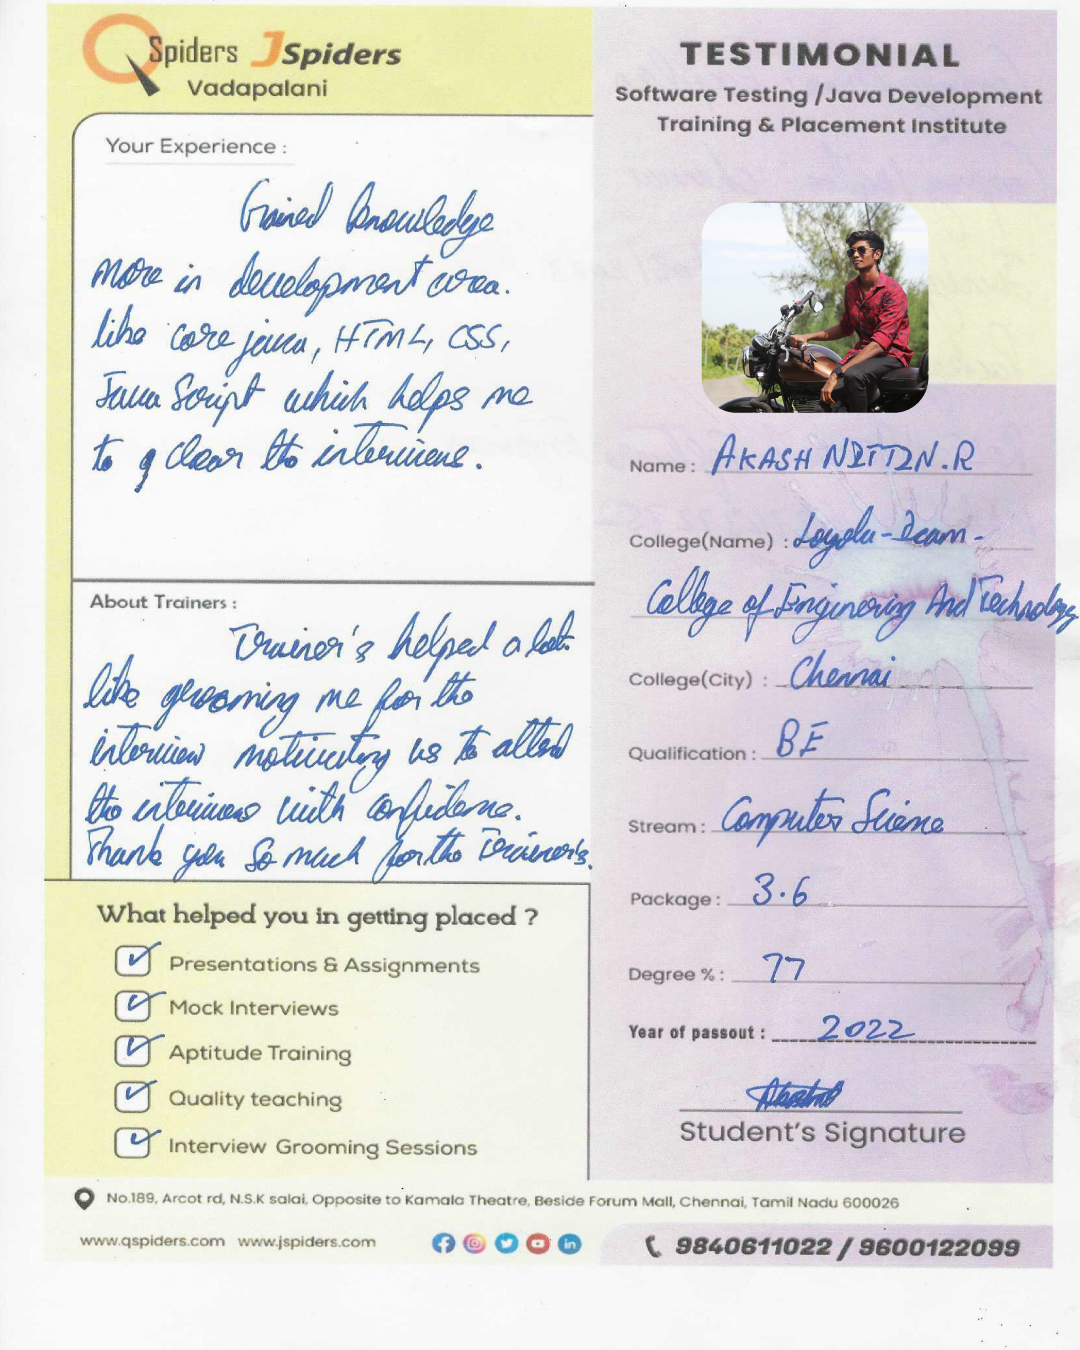 QSpiders JSpiders
Vadapalani
Your Experience :
Gained knowledge
more in development area.
like core java, HTML, CSS,
Java Script which helps me
to clear the interviews.
About Trainers :
Trainer's helped a lot
like grooming me for the
interview motivating us to attend
the interviews with confidence.
Thank you so much for the Trainer's.
What helped you in getting placed ?
Presentations & Assignments
Mock Interviews
Aptitude Training
Quality teaching
Interview Grooming Sessions
TESTIMONIAL
Software Testing /Java Development
Training & Placement Institute
Name : AKASH NITTIN.R
College(Name) : Loyola-Icam-
College of Enginering And Technology
College(City) : Chennai
Qualification : BE
Stream : Computer Science
Package : 3.6
Degree % : 77
Year of passout : 2022
Student's Signature
No.189, Arcot rd, N.S.K salai, Opposite to Kamala Theatre, Beside Forum Mall, Chennai, Tamil Nadu 600026
www.qspiders.com www.jspiders.com
9840611022 / 9600122099